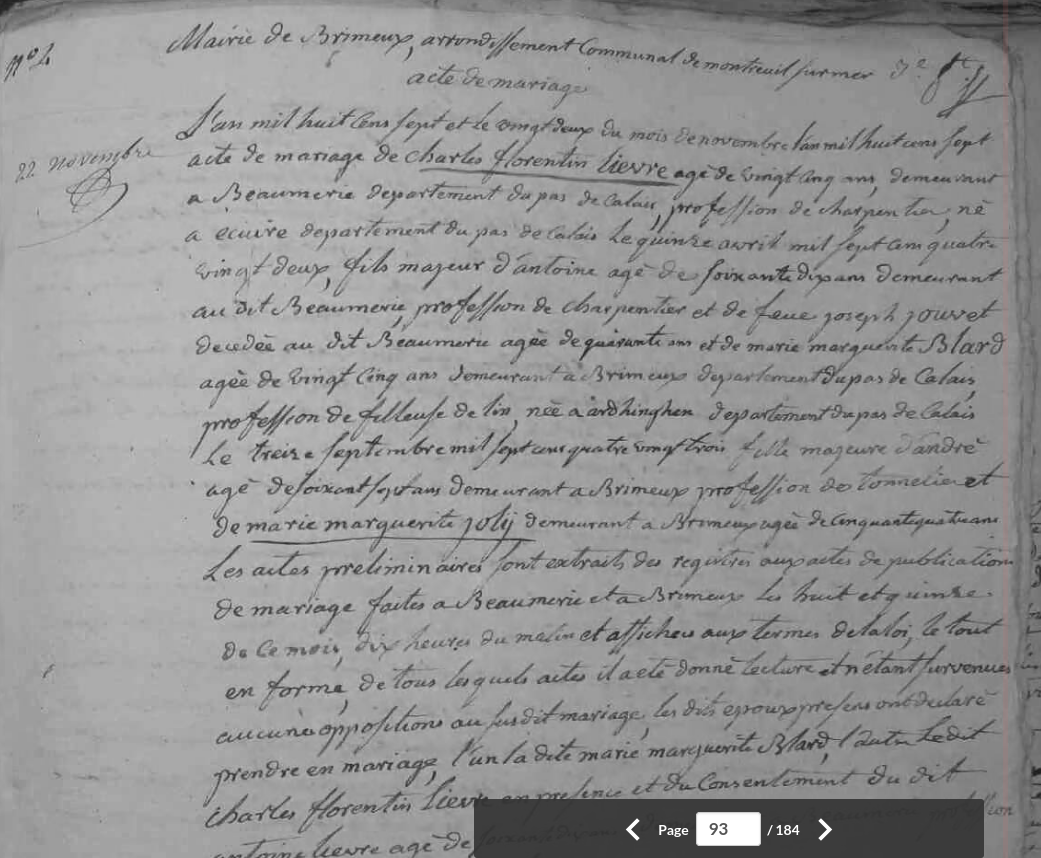 Mairie de Brimeux, arrondissement Communal de montreuil sur mer
n° 4
acte de mariage
22 novembre
L'an mil huit Cens sept et le vingt deux du mois de novembre l'an mil huit cens sept
acte de mariage de charles florentin lievre agé de vingt cinq ans, demeurant
a Beaumerie departement du pas de Calais, profession de charpentier, né
a ecuire departement du pas de Calais Le quinze avril mil sept cens quatre
vingt deux, fils majeur d'antoine agé de soixante dix ans demeurant
au dit Beaumerie, profession de charpentier et de feue joseph jouvet
decedée au dit Beaumerie agée de quarante ans et de marie marguerite Blard
agée de vingt Cinq ans demeurant a Brimeux departement du pas de Calais,
profession de filleuse de lin, née a ardhinghen departement du pas de Calais
Le treize septembre mil sept cens quatre vingt trois fille majeure d'andré
agé de soixant sept ans demeurant a Brimeux profession de tonnelier et
de marie marguerite jolij demeurant a Brimeux agée de cinquante quatre ans
Les actes preliminaires sont extraits des registres aux actes de publications
de mariage faites a Beaumerie et a Brimeux les huit et quinze
de Ce mois, dix heures du matin et affichés aux termes de la loi, le tout
en forme, de tous lesquels actes il a eté donné lecture et n'étant survenues
aucunes oppositions au susdit mariage, les dits epoux presens ont declaré
prendre en mariage, l'un la dite marie marguerite Blard, l'autre Le dit
charles florentin lievre en presence et du Consentement du dit
antoine lievre agé de
Page 93 / 184